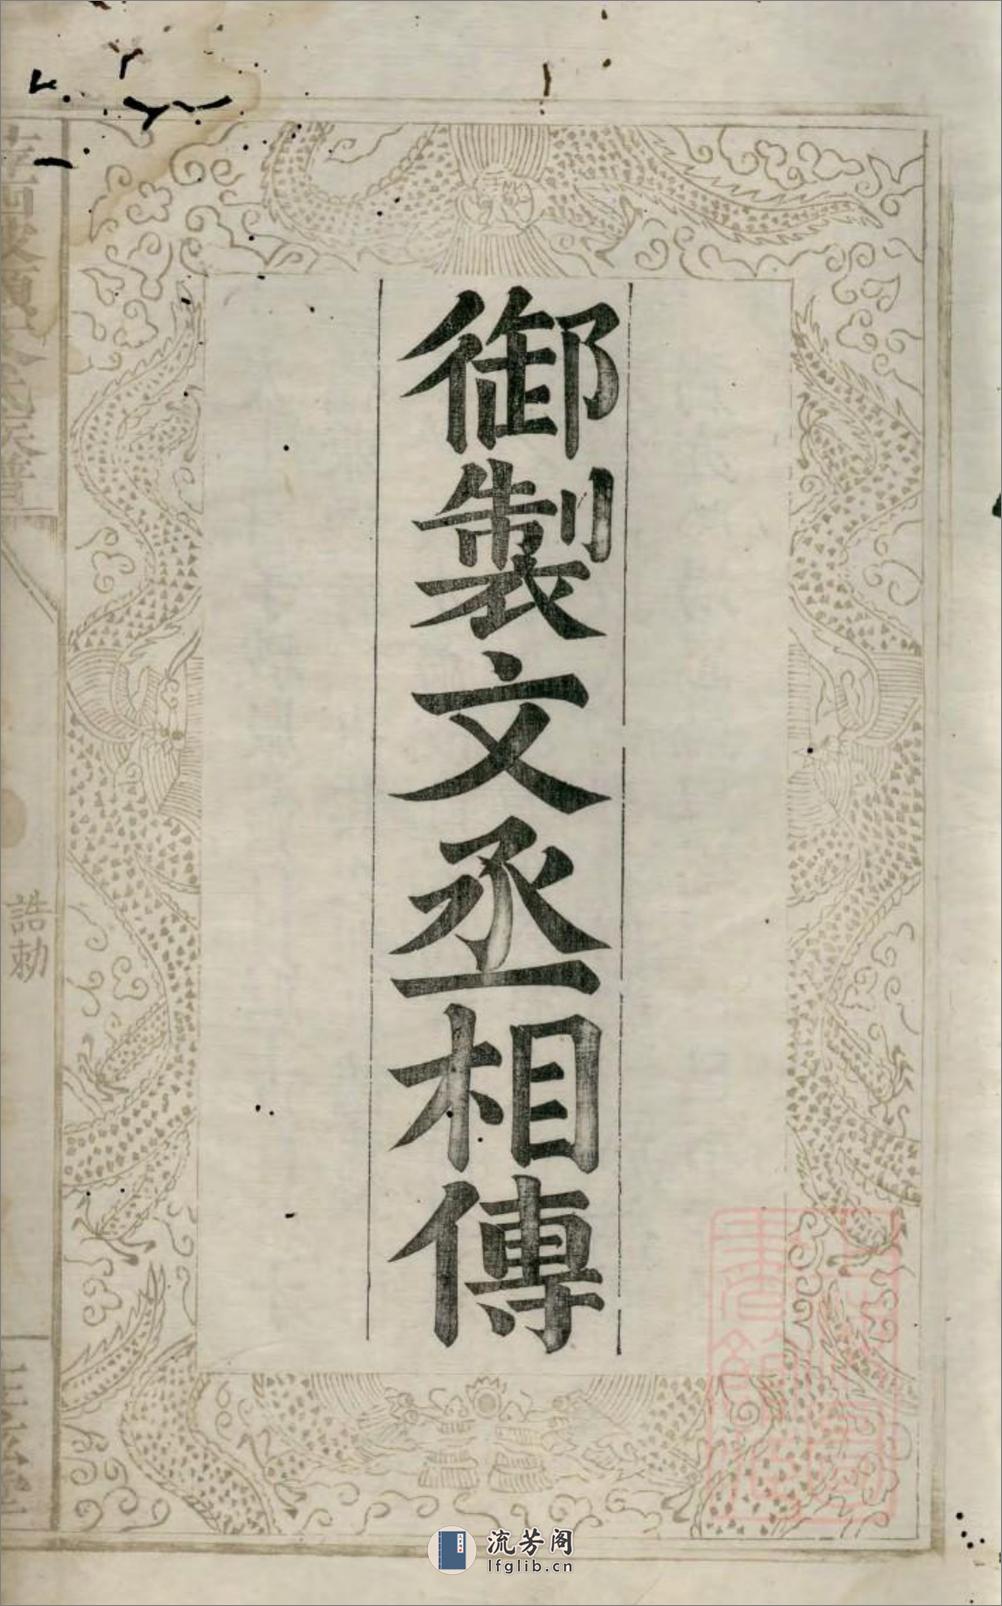 御製文丞相傳
誥勅
流芳阁
lfglib.cn